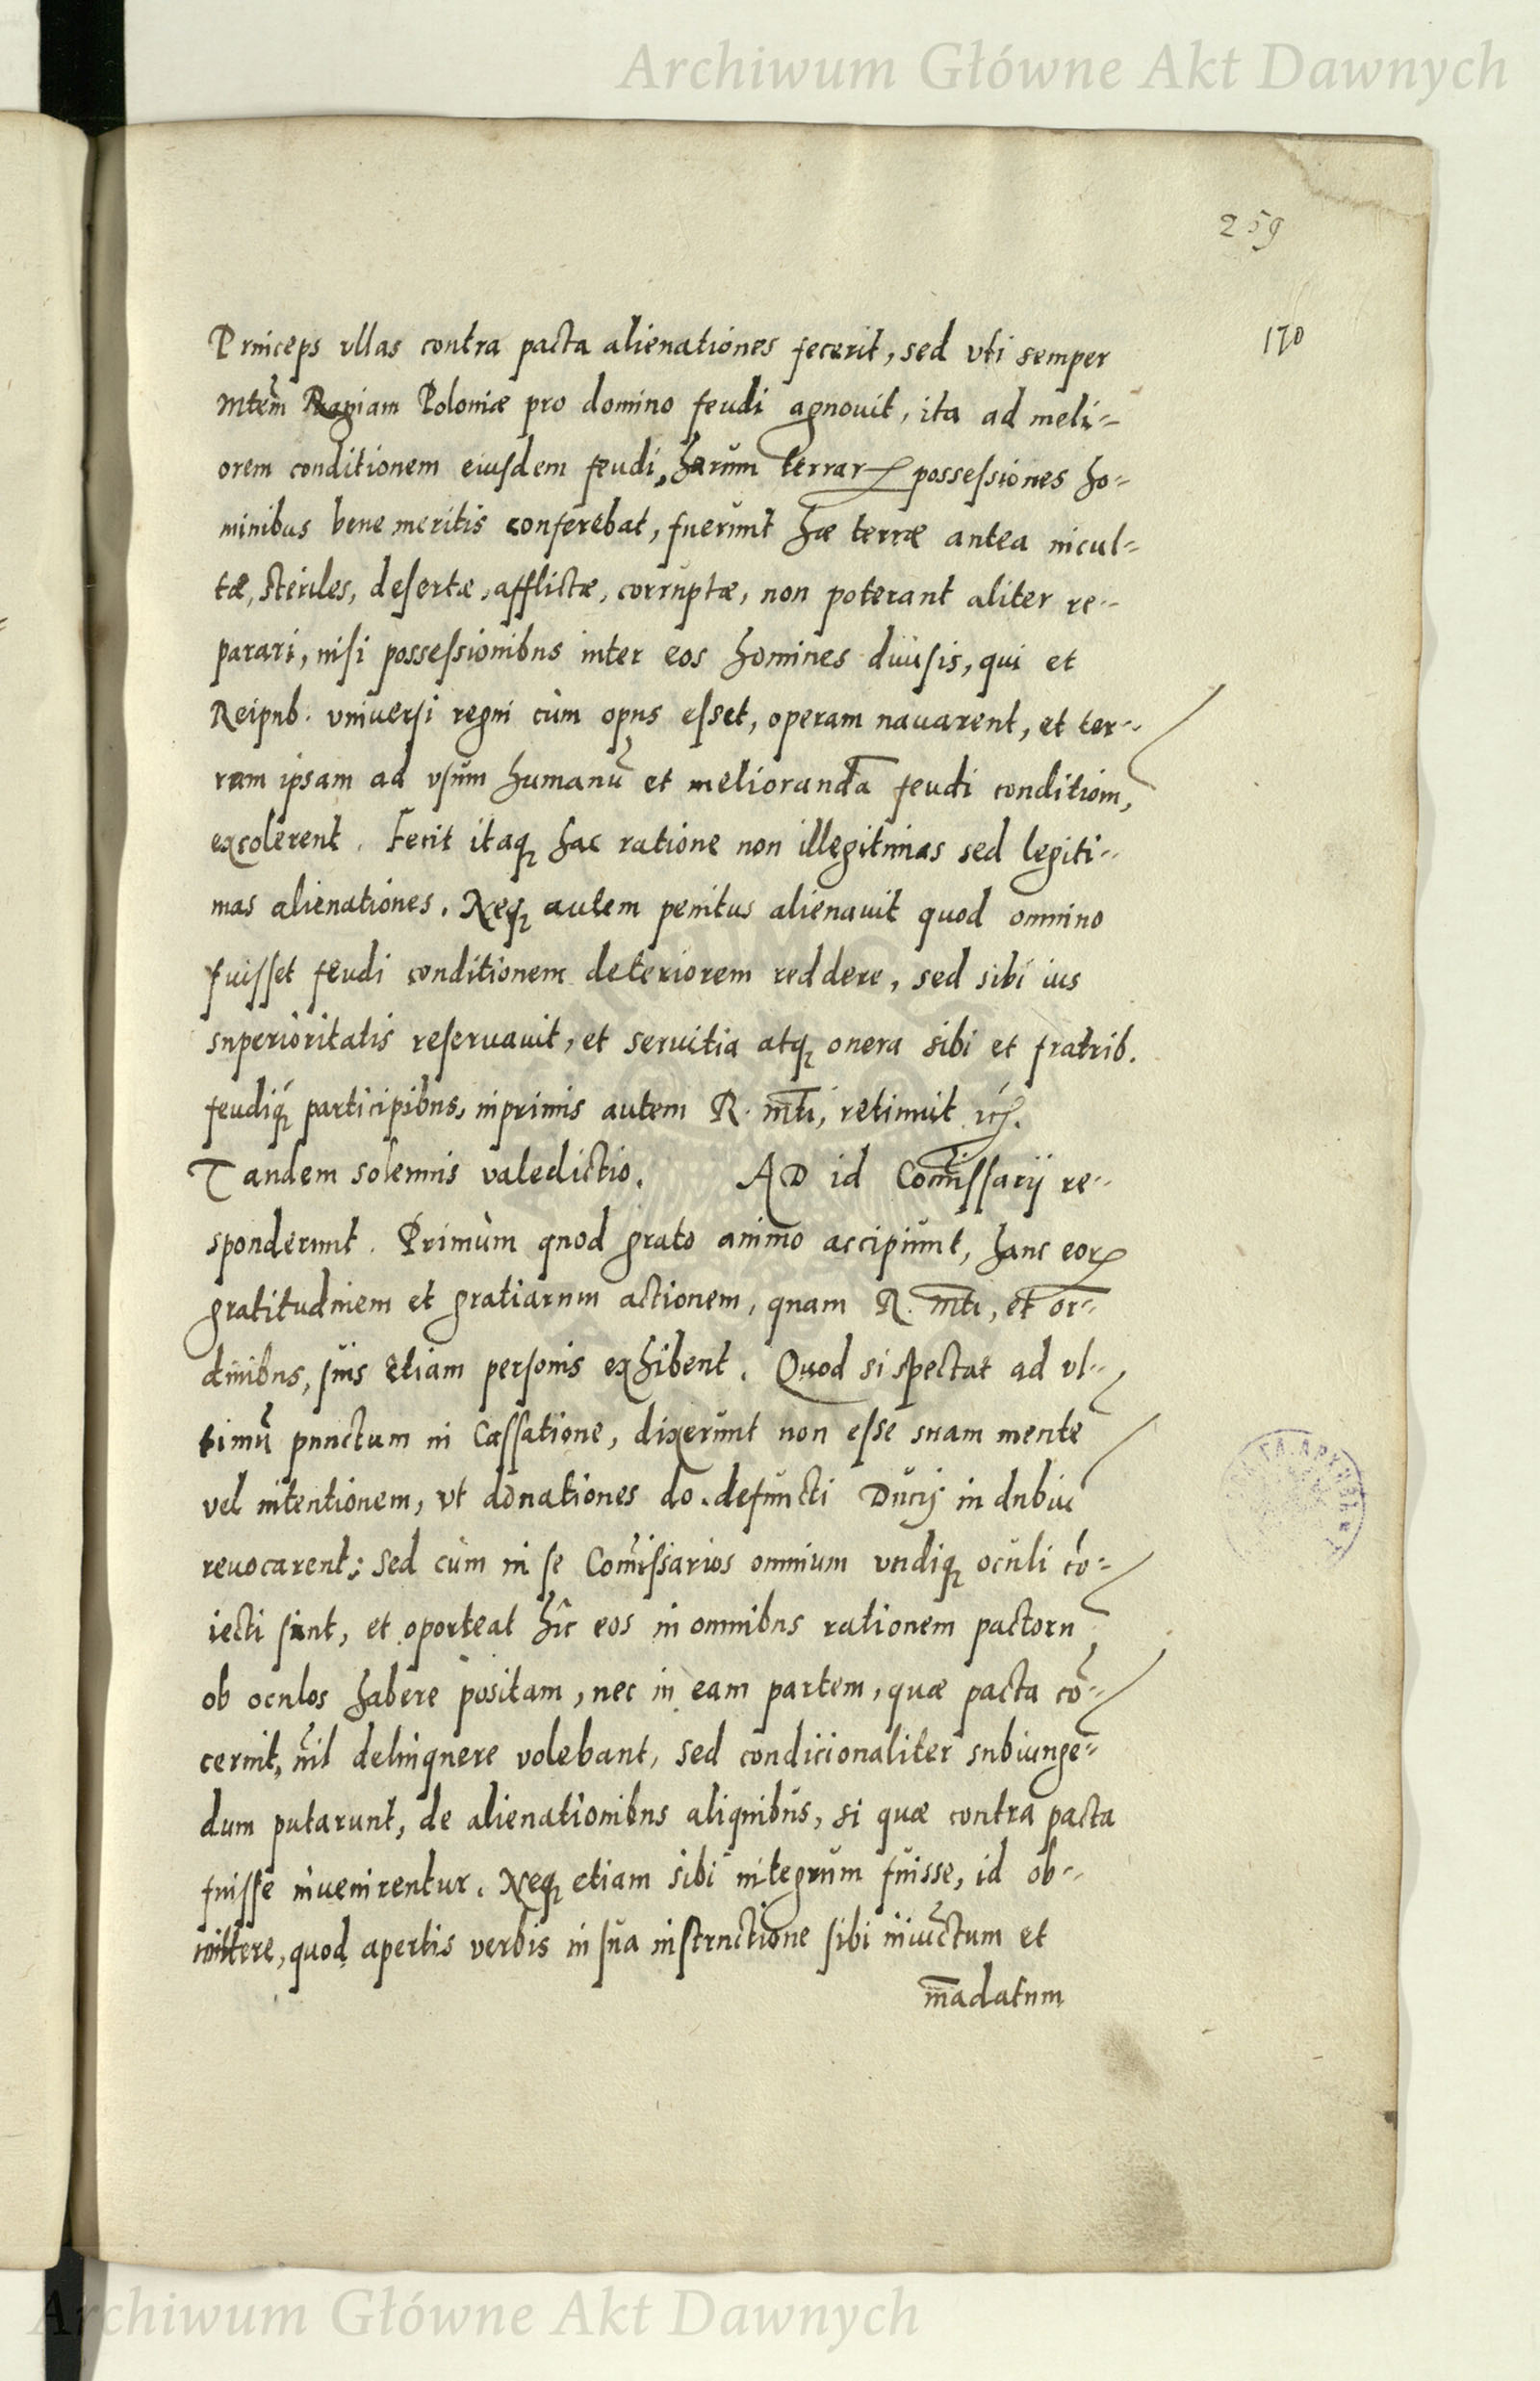 Archiwum Główne Akt Dawnych
259
170
Princeps vllas contra pacta alienationes fecerit, sed vti semper
mtem̃ Regiam Poloniæ pro domino feudi agnouit, ita ad meli-
orem conditionem eiusdem feudi, harum terrarꝝ possessiones ho-
minibus bene meritis conferebat, fuerunt hæ terræ antea incul-
tæ, steriles, desertæ, afflictæ, corruptæ, non poterant aliter re-
parari, nisi possessionibus inter eos homines diuisis, qui et
Reipub. vniuersi regni cùm opus esset, operam nauarent, et ter-
ram ipsam ad vsum humanũ et meliorandã feudi conditioin,
excolerent. Fecit itaqꝫ hac ratione non illegitimas sed legiti-
mas alienationes. Neqꝫ autem penitus alienauit quod omnino
fuisset feudi conditionem deteriorem reddere, sed sibi ius
superioritatis reseruauit, et seruitia atqꝫ onera sibi et fratrib.
feudiqꝫ participibus, inprimis autem R. mti, retinuit
Tandem solemnis valedictio. AD id Com̃issarij re-
sponderunt. Primùm quod grato animo accipiunt, hanc eorꝝ
gratitudinem et gratiarum actionem, quam R. mti, et or-
dinibus, suis etiam personis exhibent. Quod si spectat ad vl-
timũ punctum in Cassatione, dixerunt non esse suam mentẽ
vel intentionem, vt donationes do. defuncti Ducis in dubiũ
reuocarent: sed cùm in se Com̃issarios omnium vndiqꝫ oculi cõ-
iecti sint, et oporteat hîc eos in omnibus rationem pactorũ
ob oculos habere positam, nec in eam partem, quæ pacta cõ-
cernit, nil delinquere volebant, sed condicionaliter subiungẽ-
dum putarunt, de alienationibus aliquibus, si quæ contra pacta
fuisse inuenirentur. Neqꝫ etiam sibi integrum fuisse, id ob-
mittere, quod apertis verbis in sua instructione sibi iniũctum et
mãdatum
Archiwum Główne Akt Dawnych